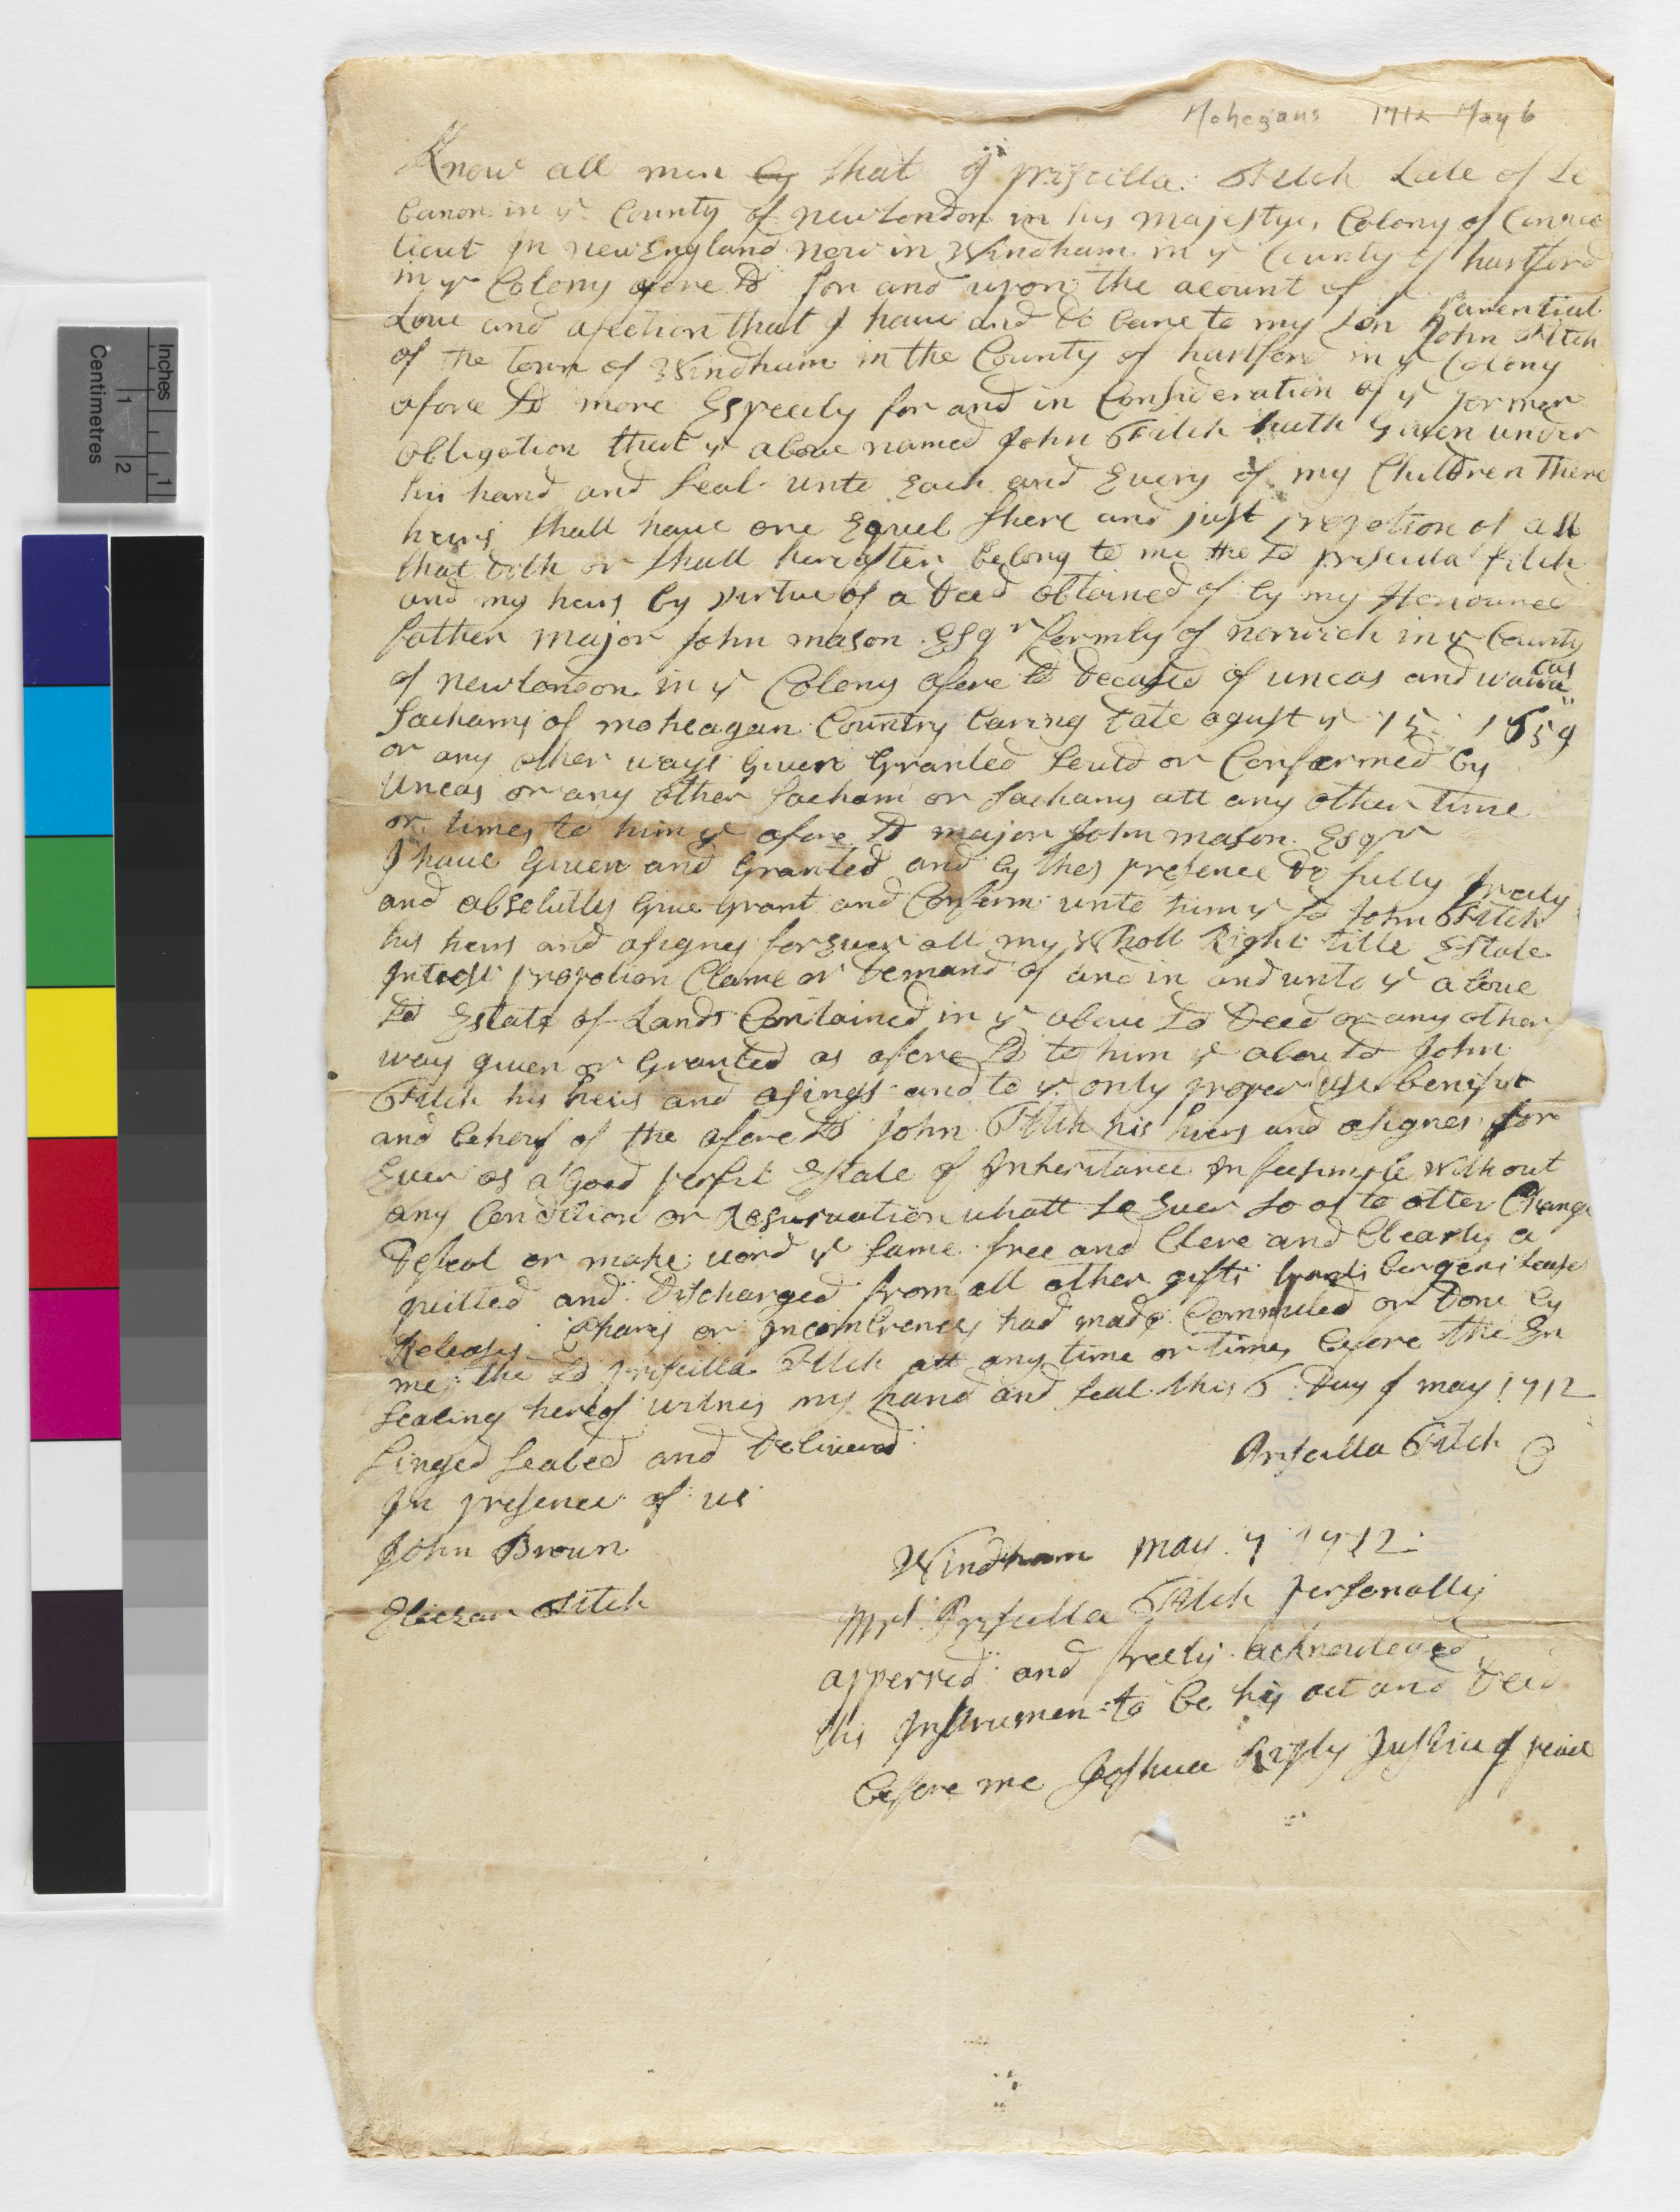 Mohegans 1712 May 6
Know all men by that I priscilla Fitch Late of Le
banon in ye County of newlondon in his majestys Colony of Connec
ticut In new England now in Windham in ye County of hartford
in ye Colony afore sd for and upon the acount of ye parential
Love and afection that I have and do bare to my son John Fitch
of the town of Windham in the County of hartford in ye Colony
afore sd more Especily for and in Consideration of ye former
obligation that ye above named John Fitch hath Given under
his hand and seal unto Each and Every of my Children There
heirs shall have one Equel shere and just propotion of all
that doth or shall hereafter belong to me the sd priscilla fitch
and my heirs by virtue of a deed obtained of by my Honoured
father major John mason Esqr formly of norwich in ye County
of newlondon in ye Colony afore sd decased of uncas and wawa
cus
sachams of moheagan Country baring date agust ye 15 1659
or any other ways Given Granted or Confermed by
uncas or any other sacham or sachams att any other time
or times to him ye afore sd major John mason Esqr
I have Given and Granted and by thes presence do fully freely
and absolutly Give grant and Conferm unto him ye sd John Fitch
his heirs and asignes for Ever all my Wholl Right title Estate
Intrest propotion Clame or demand of and in and unto ye above
sd Estate of Lands Contained in ye above sd deed or any other
way given or Granted as afore sd to him ye above sd John
Fitch his heirs and asings and to ye only proper use benifit
and behouf of the afore sd John Fitch his hiers and asignes for
Ever as a Good perfit Estate of Inheritance In feesimple without
any Condition or Resurvation whatt so Ever so as to alter Change
defeat or make void ye same free and Clere and Clearly a
quitted and discharged from all other gifts grants bargens leases
Releases shares or Incombrences had made Commited or Done by
me the sd priscilla Fitch att any time or times before the En
sealing hereof witnes my hand and seal this 6 Day of may 1712
singed sealed and delivered
Priscilla Fitch
In presence of us
John Brown
Eliezar Fitch
Windham may 7 1712
Mrs Priscilla Fitch personally
apperred and freely acknowleged
this Instrumen to be his act and deed
before me Joshua Riply Justice of peace